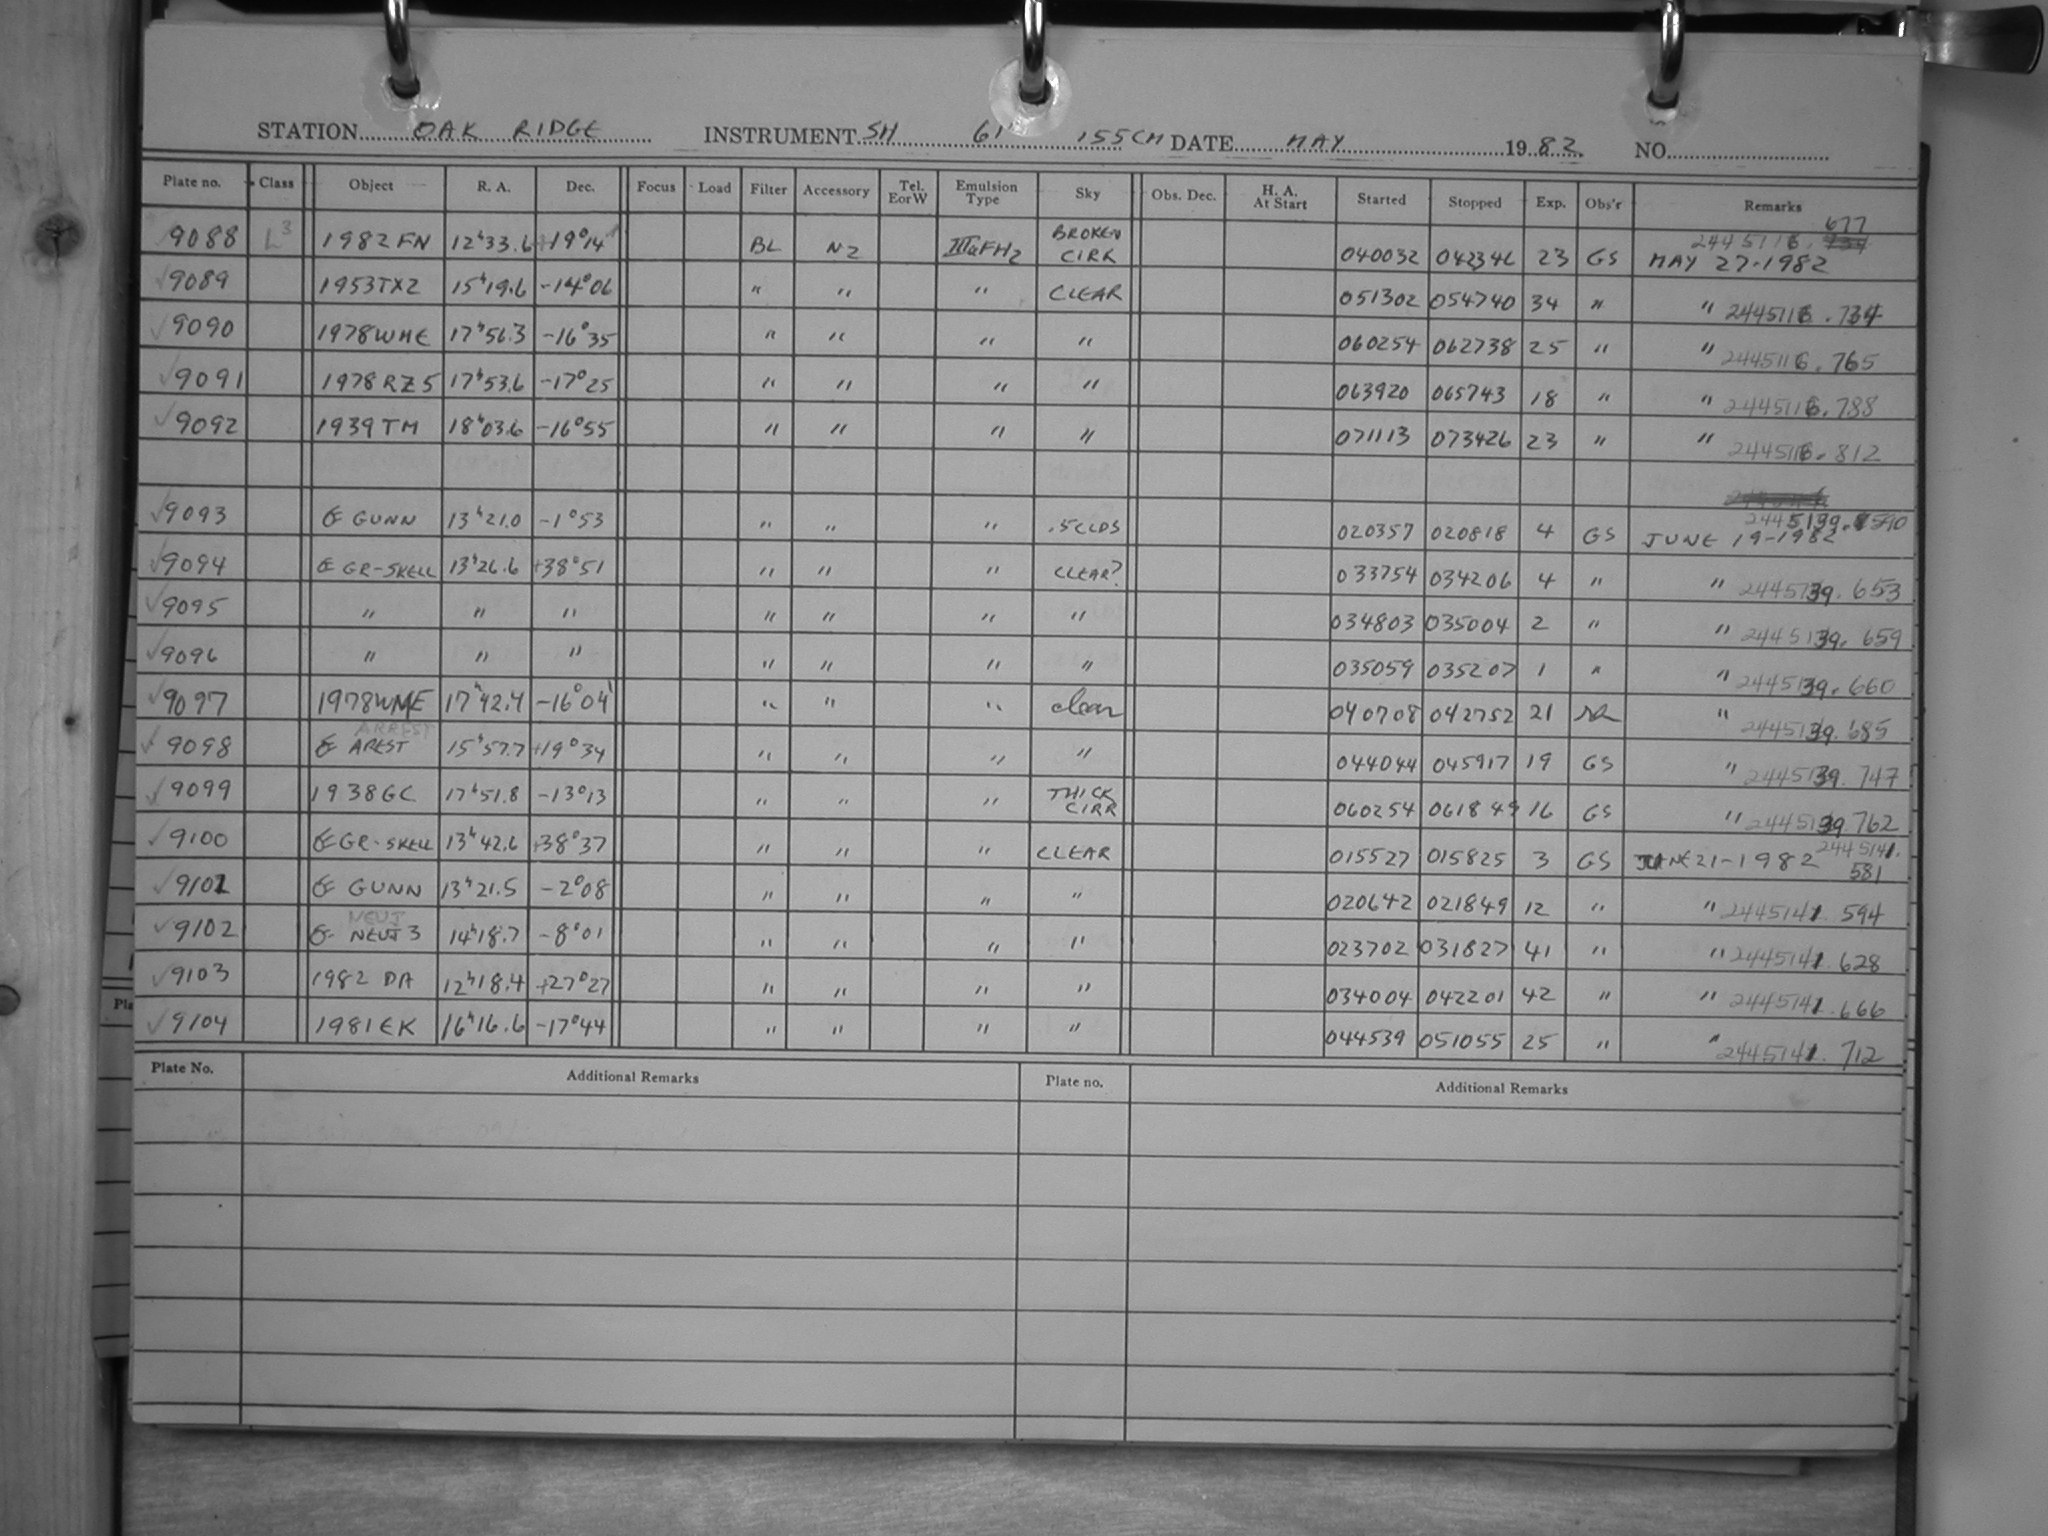 STATION OAK RIDGE INSTRUMENT SH 61" 155CM DATE MAY 1982 NO.
Plate no. Class Object R. A. Dec. Focus Load Filter Accessory Tel. E or W Emulsion Type Sky Obs. Dec. H. A. At Start Started Stopped Exp. Obs'r Remarks
9088 L3 1982 FN 12h33.6 +19°14' BL N2 IIIaFH2 BROKEN CIRR 040032 042346 23 GS 2445116.677 MAY 27-1982
9089 1953TX2 15h19.6 -14°06 " " " CLEAR 051302 054740 34 " " 2445116.734
9090 1978WME 17h56.3 -16°35 " " " " 060254 062738 25 " " 2445116.765
9091 1978RZ5 17h53.6 -17°25 " " " " 063920 065743 18 " " 2445116.788
9092 1939TM 18h03.6 -16°55 " " " " 071113 073426 23 " " 2445116.812
9093 GUNN 13h21.0 -1°53 " " " .5CLDS 020357 020818 4 GS 2445139.590 JUNE 19-1982
9094 GR-SKELL 13h26.6 +38°51 " " " CLEAR? 033754 034206 4 " " 2445139.653
9095 " " " " " " " 034803 035004 2 " " 2445139.659
9096 " " " " " " " 035059 035207 1 " " 2445139.660
9097 1978WME 17h42.4 -16°04' " " " clear 040708 042752 21 " 2445139.685
9098 ARREST AREST 15h57.7 +19°34 " " " " 044044 045917 19 GS " 2445139.747
9099 1938GC 17h51.8 -13°13 " " " THICK CIRR 060254 061849 16 GS " 2445139.762
9100 GR-SKELL 13h42.6 +38°37 " " " CLEAR 015527 015825 3 GS JUNE 21-1982 2445141.581
9101 GUNN 13h21.5 -2°08 " " " " 020642 021849 12 " " 2445141.594
9102 NEUJ NEUJ 3 14h18.7 -8°01 " " " " 023702 031827 41 " " 2445141.628
9103 1982 DA 12h18.4 +27°27 " " " " 034004 042201 42 " " 2445141.666
9104 1981EK 16h16.6 -17°44 " " " " 044539 051055 25 " " 2445141.712
Plate No. Additional Remarks Plate no. Additional Remarks